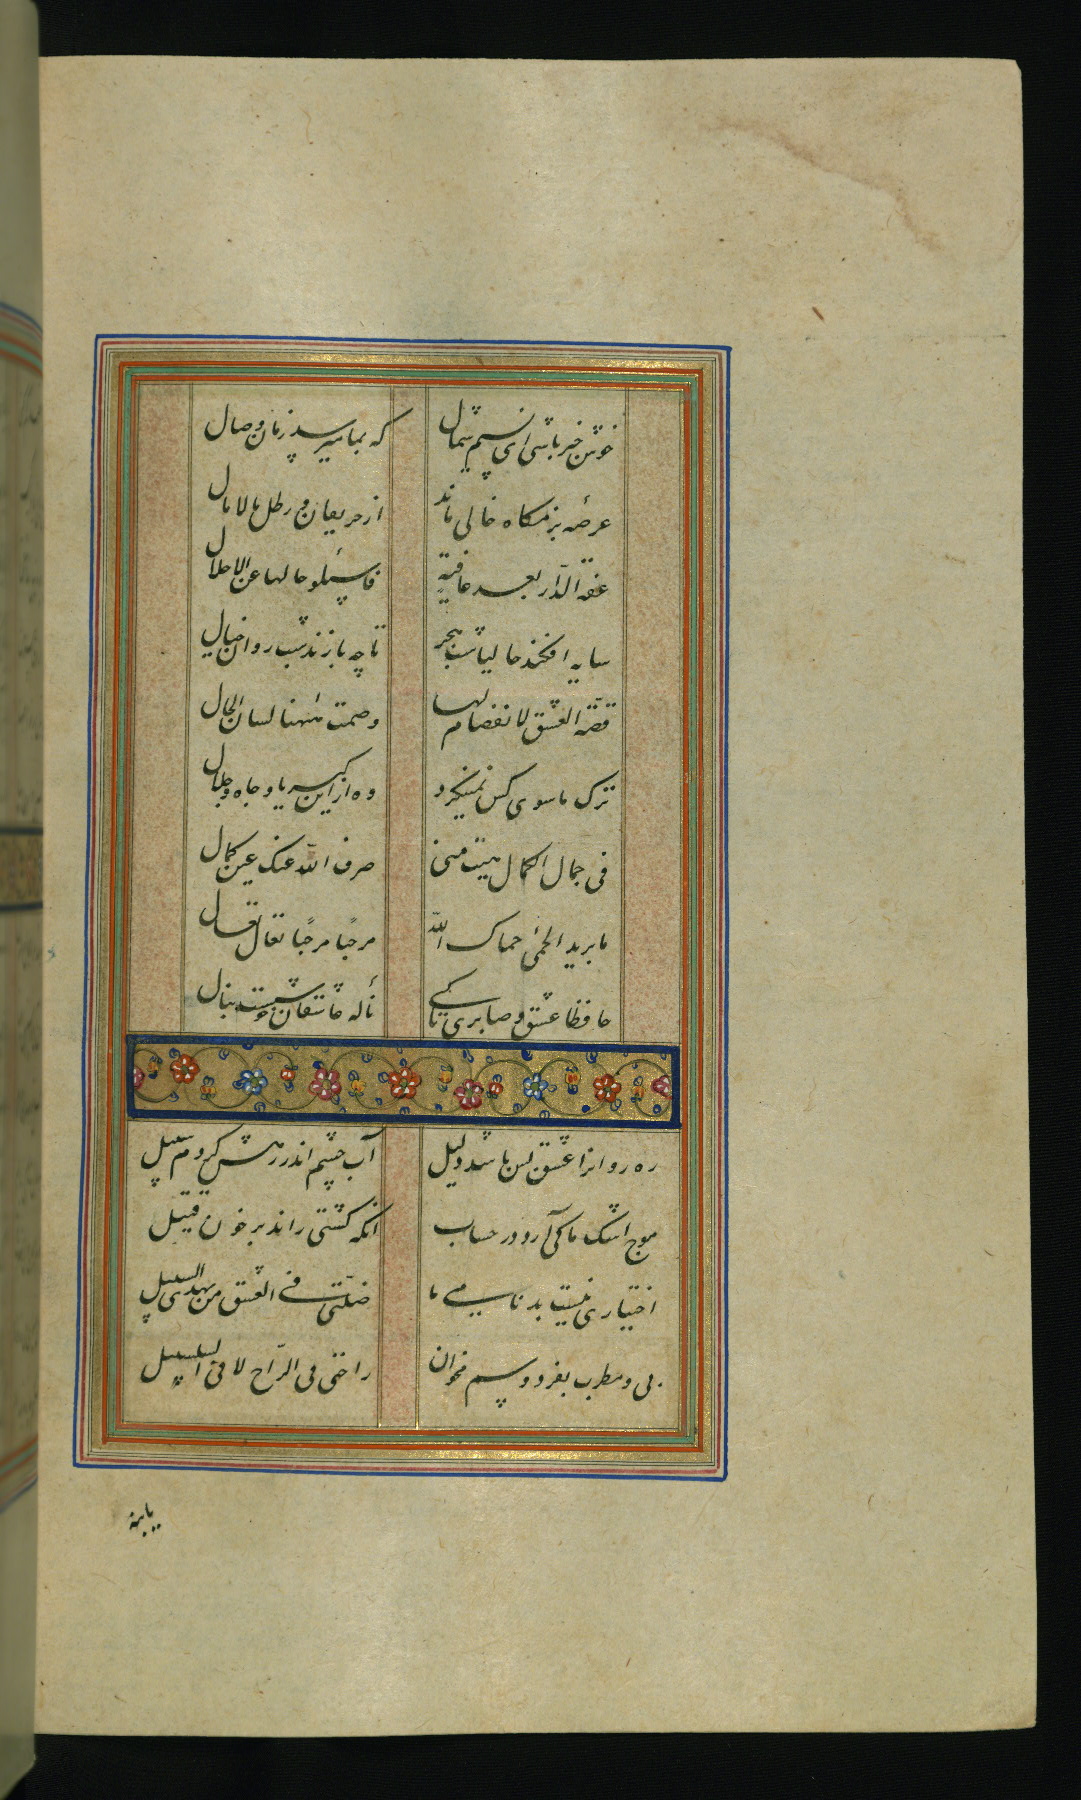 خوش خبر باشی ای نسیم شمال که بما میرسد زمان وصال
عرصه بزمگاه خالی ماند از حریفان و رطل مالامال
عفة الدار بعد عافیة فاسئلو حالها عن الاطلال
سایه افکند حالیا شب هجر تا چه بازند شب روان خیال
قصّة العشق لا انفصام لها وصمت مهنا لسان الحال
ترک ما سوی کس نمینگرد وه ازاین کبریا و جاه و جلال
فی جمال الکمال نیت منی صرف اللّه عنک عین کمال
یا برید الحمی حماک اللّه مرحبًا مرحبًا تعال تعال
حافظا عشق و صابری تا کی نالهٔ عاشقان خوشست بنال
ره روانرا عشق بس باشد دلیل آب چشم اندر رهش کردم سبیل
موج اشک ما کی آرد در حساب انکه کشتی راند بر خون قتیل
اختیاری نیست بدنامی ما ضلّنی فی العشق من یهدی السبیل
بی می و مطرب بفردوسم مخوان راحتی فی الرّاح لا فی السلسبیل
یا بنه